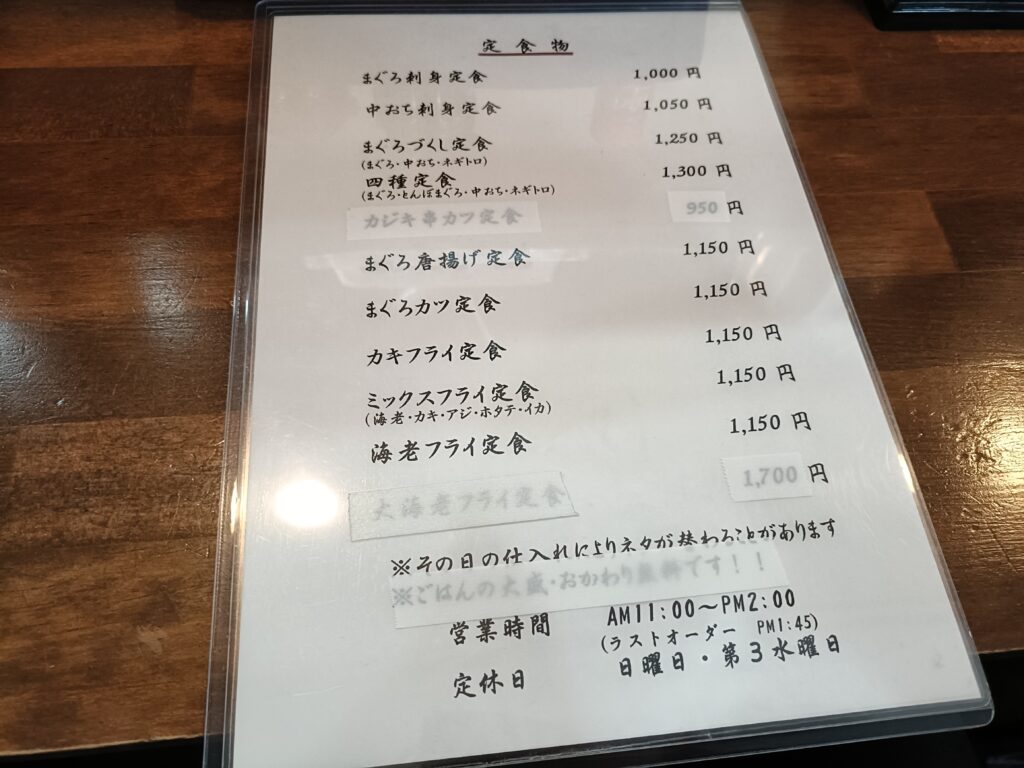 定食物
まぐろ刺身定食 1,000 円
中おち刺身定食 1,050 円
まぐろづくし定食 1,250 円
(まぐろ・中おち・ネギトロ)
四種定食 1,300 円
(まぐろ・とんぼまぐろ・中おち・ネギトロ)
カジキ串カツ定食 950 円
まぐろ唐揚げ定食 1,150 円
まぐろカツ定食 1,150 円
カキフライ定食 1,150 円
ミックスフライ定食 1,150 円
(海老・カキ・アジ・ホタテ・イカ)
海老フライ定食 1,150 円
大海老フライ定食 1,700 円
※その日の仕入れによりネタが替わることがあります
※ごはんの大盛・おかわり無料です！！
営業時間 AM11:00～PM2:00
(ラストオーダー PM1:45)
定休日 日曜日・第3水曜日